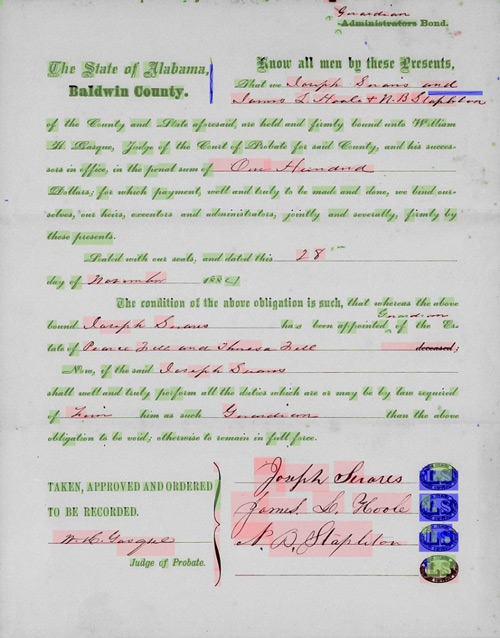 Guardian
Administrators Bond.
The State of Alabama,
Baldwin County.
Know all men by these Presents,
That we Joseph Suares and
James L Hoole & N. B Stapleton
of the County and State aforesaid, are held and firmly bound unto William
H. Gasque, Judge of the Court of Probate for said County, and his succes-
sors in office, in the penal sum of One Hundred
Dollars; for which payment, well and truly to be made and done, we bind our-
selves, our heirs, executors and administrators, jointly and severally, firmly by
these presents.
Sealed with our seals, and dated this 28
day of November 188
The condition of the above obligation is such, that whereas the above
bound Joseph Suares has been appointed Guardian of the Es-
tate of Pearce Zell and Theresa Zell deceased;
Now, of the said Joseph Suares
shall well and truly perform all the duties which are or may be by law required
of him him as such Guardian than the above
obligation to be void; otherwise to remain in full force.
TAKEN, APPROVED AND ORDERED
TO BE RECORDED.
W. H. Gasque
Judge of Probate.
Joseph Suares LS
James. L. Hoole LS
N B. Stapleton L.S.
LS